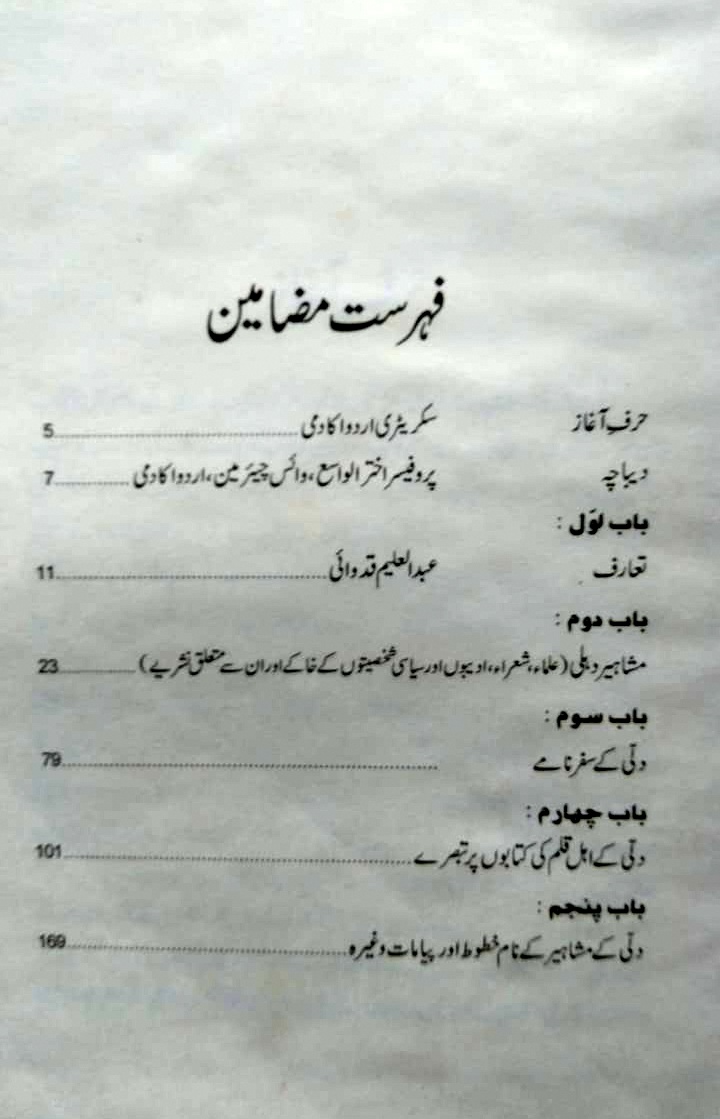 فہرست مضامین
حرفِ آغاز سکریٹری اردو اکادمی ........ 5
دیباچہ پروفیسر اختر الواسع، وائس چیئر مین، اردو اکادمی ........ 7
باب اوّل :
تعارف عبدالعلیم قدوائی ........ 11
باب دوم :
مشاہیر دہلی (علماء، شعراء، ادیبوں اور سیاسی شخصیتوں کے خاکے اور ان سے متعلق نشریے) ........ 23
باب سوم :
دلّی کے سفرنامے ........ 79
باب چہارم :
دلّی کے اہل قلم کی کتابوں پر تبصرے ........ 101
باب پنجم :
دلّی کے مشاہیر کے نام خطوط اور پیامات وغیرہ ........ 169